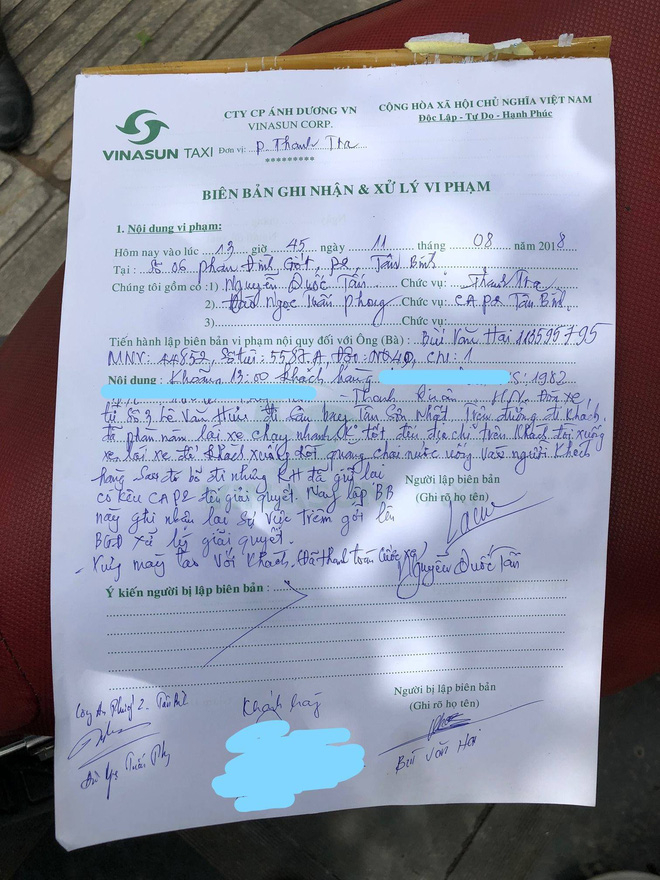 CTY CP ÁNH DƯƠNG VN
VINASUN CORP.
CỘNG HÒA XÃ HỘI CHỦ NGHĨA VIỆT NAM
Độc Lập - Tự Do - Hạnh Phúc
VINASUN TAXI
Đơn vị: P. Thanh Tra
*********
BIÊN BẢN GHI NHẬN & XỬ LÝ VI PHẠM
1. Nội dung vi phạm:
Hôm nay vào lúc 13 giờ 45 ngày 11 tháng 08 năm 2018
Tại : Số 06 Phan Đình Giót, P2, Tân Bình
Chúng tôi gồm có :1) Nguyễn Quốc Tấn Chức vụ: Thanh Tra
2) Ngọc Tuấn Phong Chức vụ: CA P2 Tân Bình
3) Chức vụ:
Tiến hành lập biên bản vi phạm nội quy đối với Ông (Bà) : Bùi Văn Hai
MNV: 44852, Số tài: 5587A
Nội dung : Khoảng 13:00 khách hàng 1982
Thanh Xuân Đón xe
từ Số 3 Lê Văn Hưu đi sân bay Tân Sơn Nhất. Trên đường đi khách
đã phàn nàn lái xe chạy nhanh K tốt, đến địa chỉ trên khách đòi xuống
xe, lái xe để khách xuống quăng chai nước uống vào người khách
hàng sau đó bỏ đi nhưng KH đã giữ lại
có kêu CA P2 đến giải quyết. Nay lập BB
này ghi nhận lại sự việc trên gởi lên
BGĐ xử lý giải quyết.
- Xưng mày tao với khách. Đã thanh toán cước xe
Người lập biên bản
(Ghi rõ họ tên)
Nguyễn Quốc Tấn
Ý kiến người bị lập biên bản :
Người bị lập biên bản
(Ghi rõ họ tên)
Công An Phường 2
Khách hàng
Bùi Văn Hai